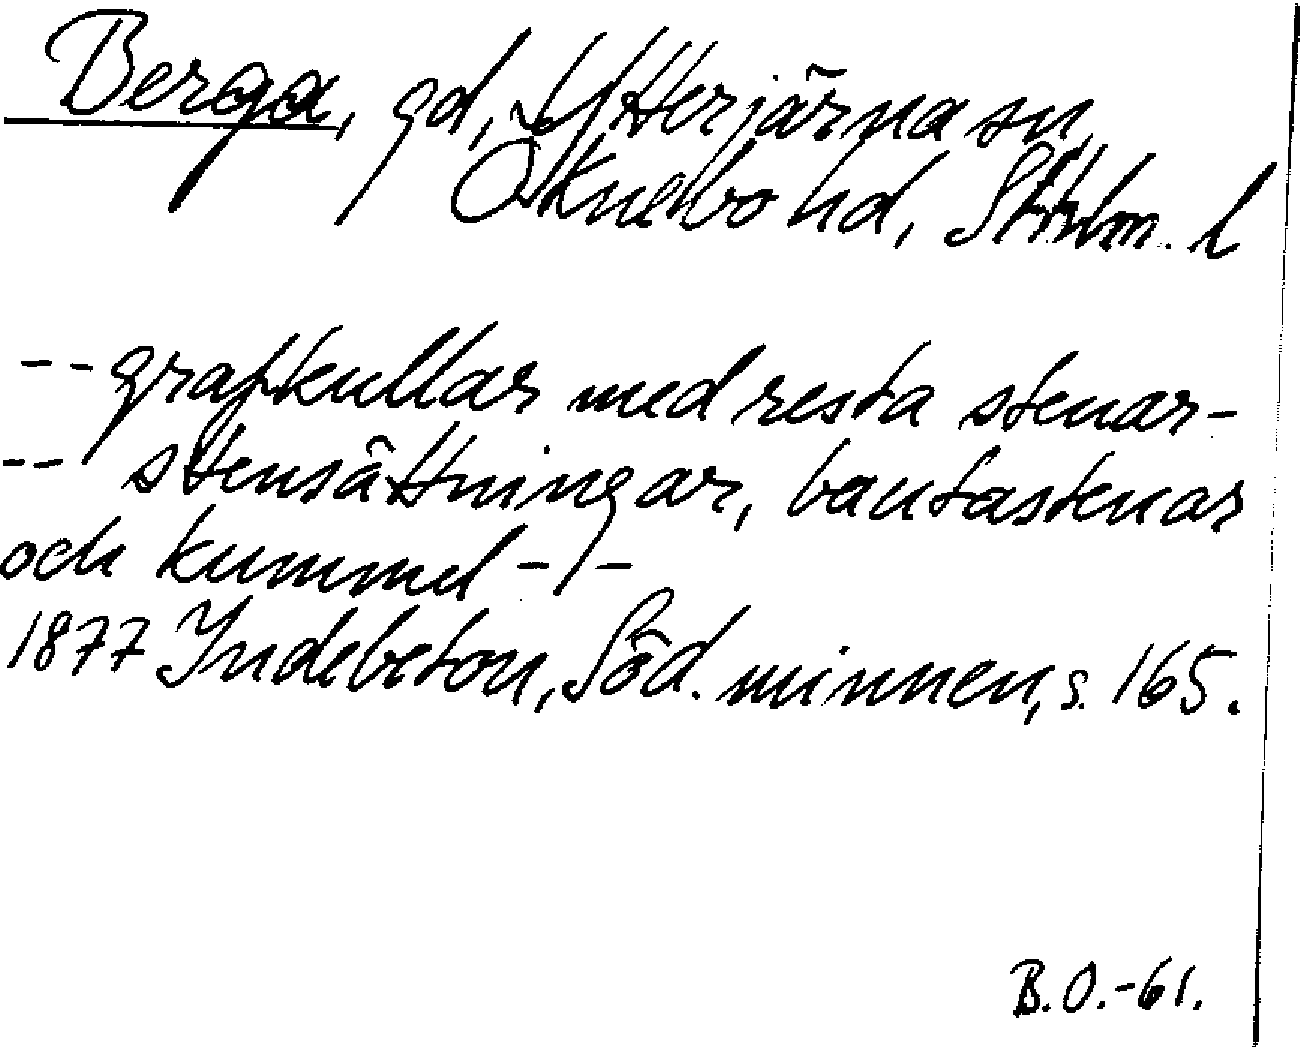 Berga, gd, Ytterjärna sn,
Öknebo hd, Sthlm. l
-- grafkullar med resta stenar -
-- stensättningar, bautastenar
och kummel - / -
1877 Indebetou, Söd. minnen, s. 165.
B.O.-61.